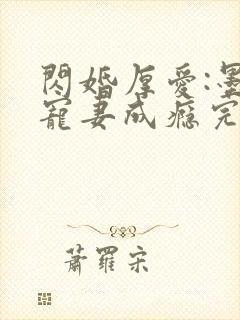 閃婚厚愛:墨
寵妻成癮完
蕭羅宋